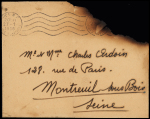 Mr & Mme Charles Cordoin
128, rue de Paris.
Montreuil sous Bois
Seine